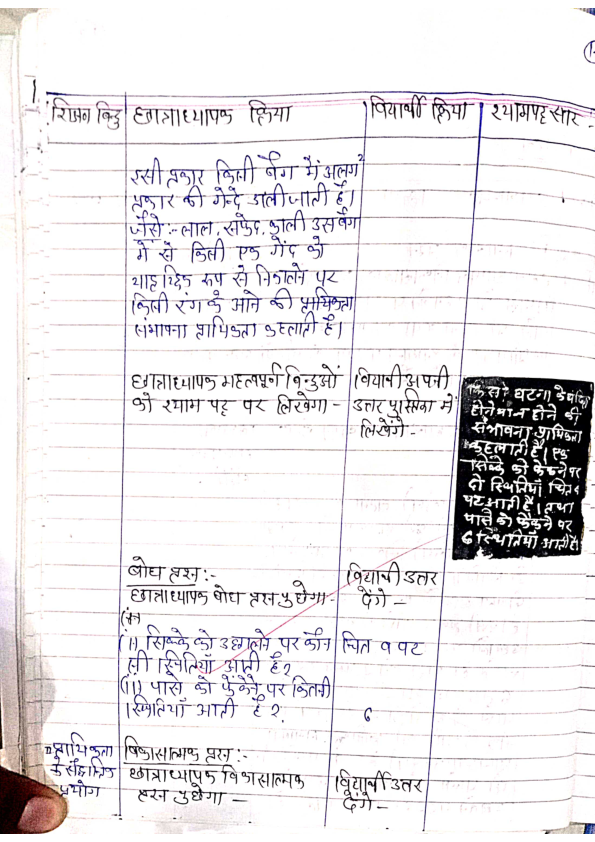 शिक्षण बिन्दु
छात्राध्यापक क्रिया
विद्यार्थी क्रिया
श्यामपट्ट सार -
इसी प्रकार किसी बैग में अलग
प्रकार की गेन्दे डाली जाती है।
जैसे :- लाल, सफेद, काली उस बैग
में से किसी एक गेंद को
यादृच्छिक रूप से निकालने पर
किसी रंग के आने की प्रायिकता
संभापना प्रायिकता कहलाती है।
छात्राध्यापक महत्वपूर्ण बिन्दुओं
को श्याम पट्ट पर लिखेगा -
विद्यार्थी अपनी
उत्तर पुस्तिका में
लिखेंगे -
किसी घटना के घटित
होने या न होने की
संभावना प्रायिकता
कहलाती है। एक
सिक्के को फेंकने पर
दो स्थितियाँ चित व
पट आती है। तथा
पासे को फेंकने पर
6 स्थितियाँ आती है।
बोध प्रश्न :-
छात्राध्यापक बोध प्रश्न पुछेगा -
विद्यार्थी उत्तर
देंगे -
(i) सिक्के को उछालने पर कौन
सी स्थितियाँ आती है?
चित व पट
(ii) पासे को फेंकने पर कितनी
स्थितियाँ आती है?
6
प्रायिकता
के सैद्धान्तिक
प्रयोग
विकासात्मक प्रश्न :-
छात्राध्यापक विकासात्मक
प्रश्न पुछेगा -
विद्यार्थी उत्तर
देंगे -